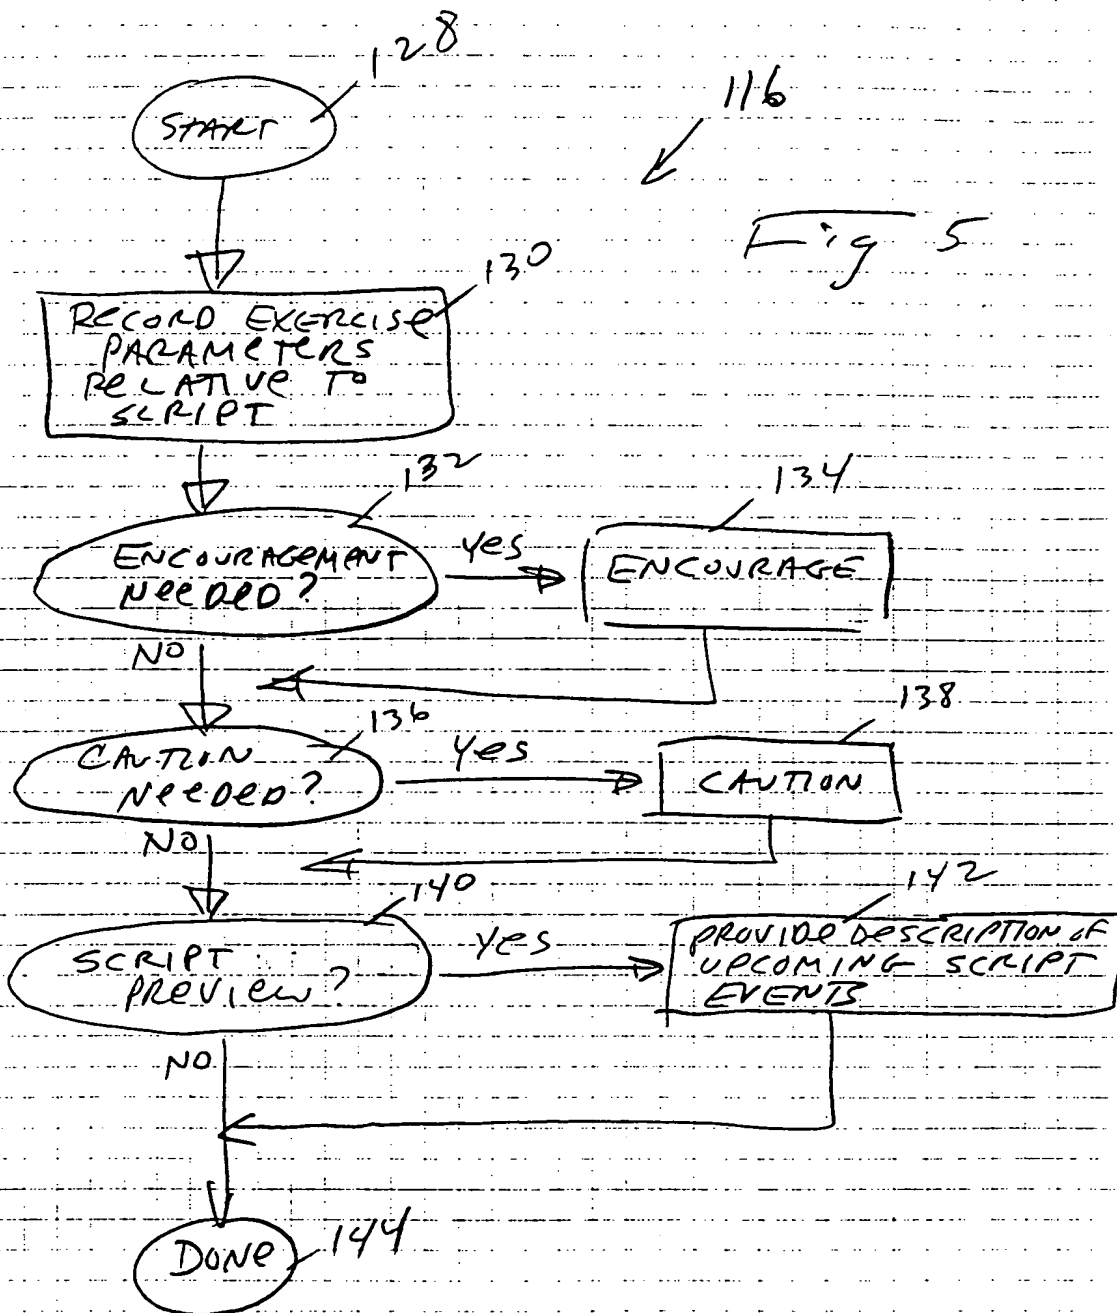 128
START
116
Fig 5
130
RECORD EXERCISE
PARAMETERS
RELATIVE TO
SCRIPT
132
134
ENCOURAGEMENT
NEEDED?
Yes
ENCOURAGE
NO
136
138
CAUTION
NEEDED?
Yes
CAUTION
NO
140
142
SCRIPT
PREVIEW?
Yes
PROVIDE DESCRIPTION OF
UPCOMING SCRIPT
EVENTS
NO
DONE
144